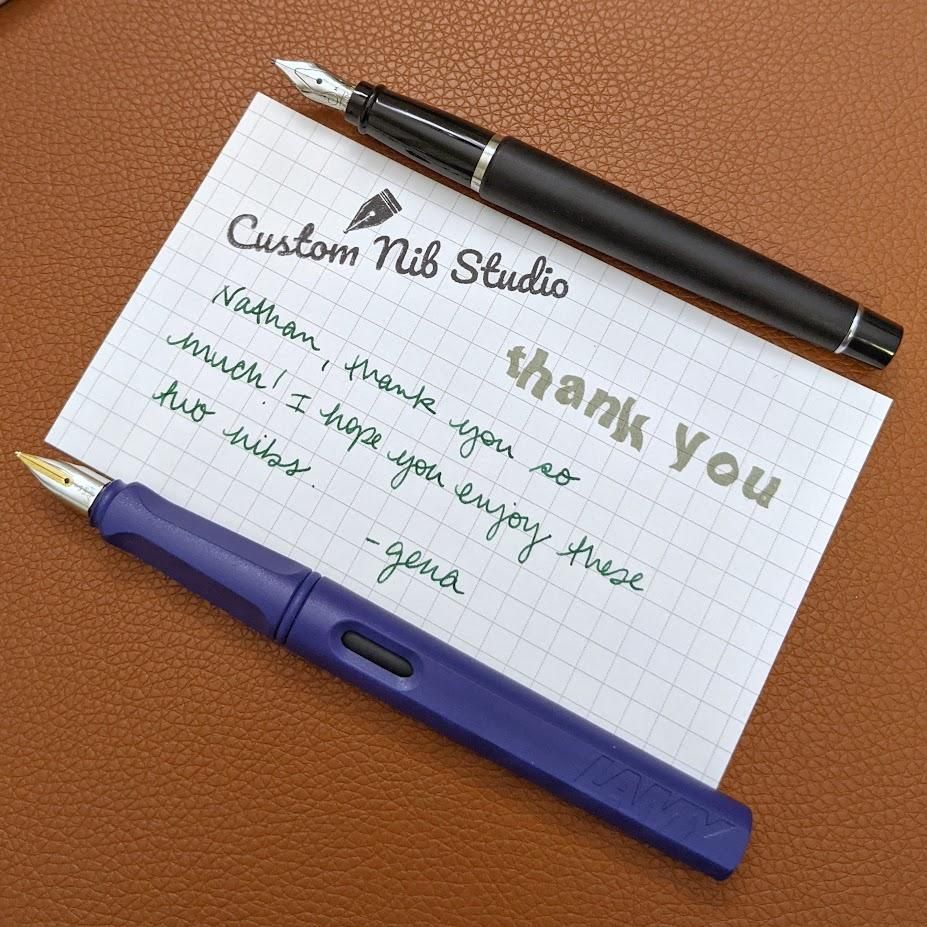 Custom Nib Studio
thank you
Nathan, thank you so
much! I hope you enjoy these
two nibs.
-gena
LAMY